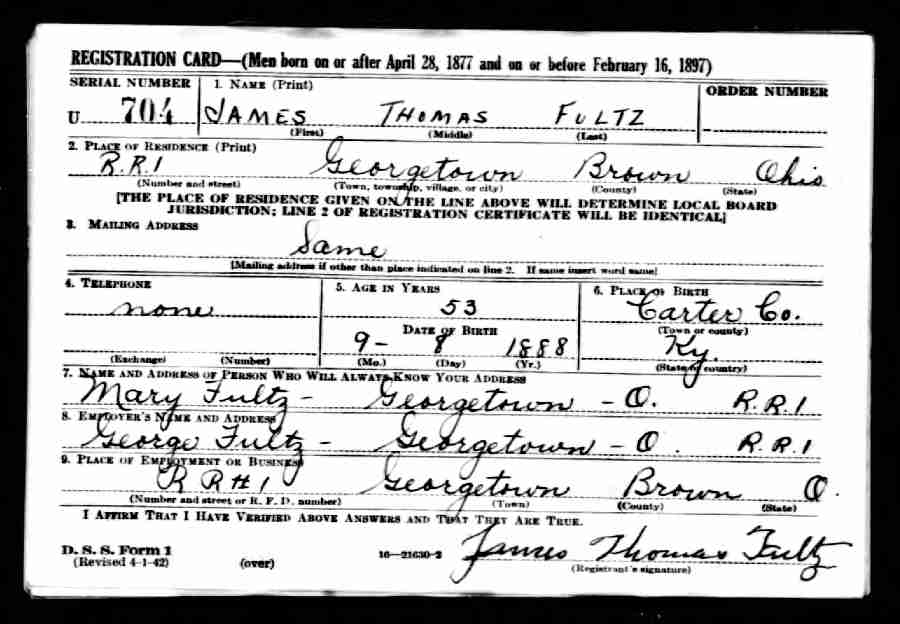 REGISTRATION CARD—(Men born on or after April 28, 1877 and on or before February 16, 1897)
SERIAL NUMBER 1. NAME (Print) ORDER NUMBER
U 704 JAMES THOMAS FULTZ
(First) (Middle) (Last)
2. PLACE OF RESIDENCE (Print)
R.R.1 Georgetown Brown Ohio
(Number and street) (Town, township, village, or city) (County) (State)
[THE PLACE OF RESIDENCE GIVEN ON THE LINE ABOVE WILL DETERMINE LOCAL BOARD
JURISDICTION; LINE 2 OF REGISTRATION CERTIFICATE WILL BE IDENTICAL]
3. MAILING ADDRESS
Same
[Mailing address if other than place indicated on line 2. If same insert word same]
4. TELEPHONE 5. AGE IN YEARS 6. PLACE OF BIRTH
none 53 Carter Co.
DATE OF BIRTH (Town or county)
9- 8 1888 Ky.
(Exchange) (Number) (Mo.) (Day) (Yr.) (State or country)
7. NAME AND ADDRESS OF PERSON WHO WILL ALWAYS KNOW YOUR ADDRESS
Mary Fultz - Georgetown - O. R.R.1
8. EMPLOYER'S NAME AND ADDRESS
George Fultz - Georgetown - O. R.R.1
9. PLACE OF EMPLOYMENT OR BUSINESS
R R # 1 Georgetown Brown O.
(Number and street or R. F. D. number) (Town) (County) (State)
I AFFIRM THAT I HAVE VERIFIED ABOVE ANSWERS AND THAT THEY ARE TRUE.
D. S. S. Form 1
(Revised 4-1-42) (over) 16—21630-2 James Thomas Fultz
(Registrant's signature)